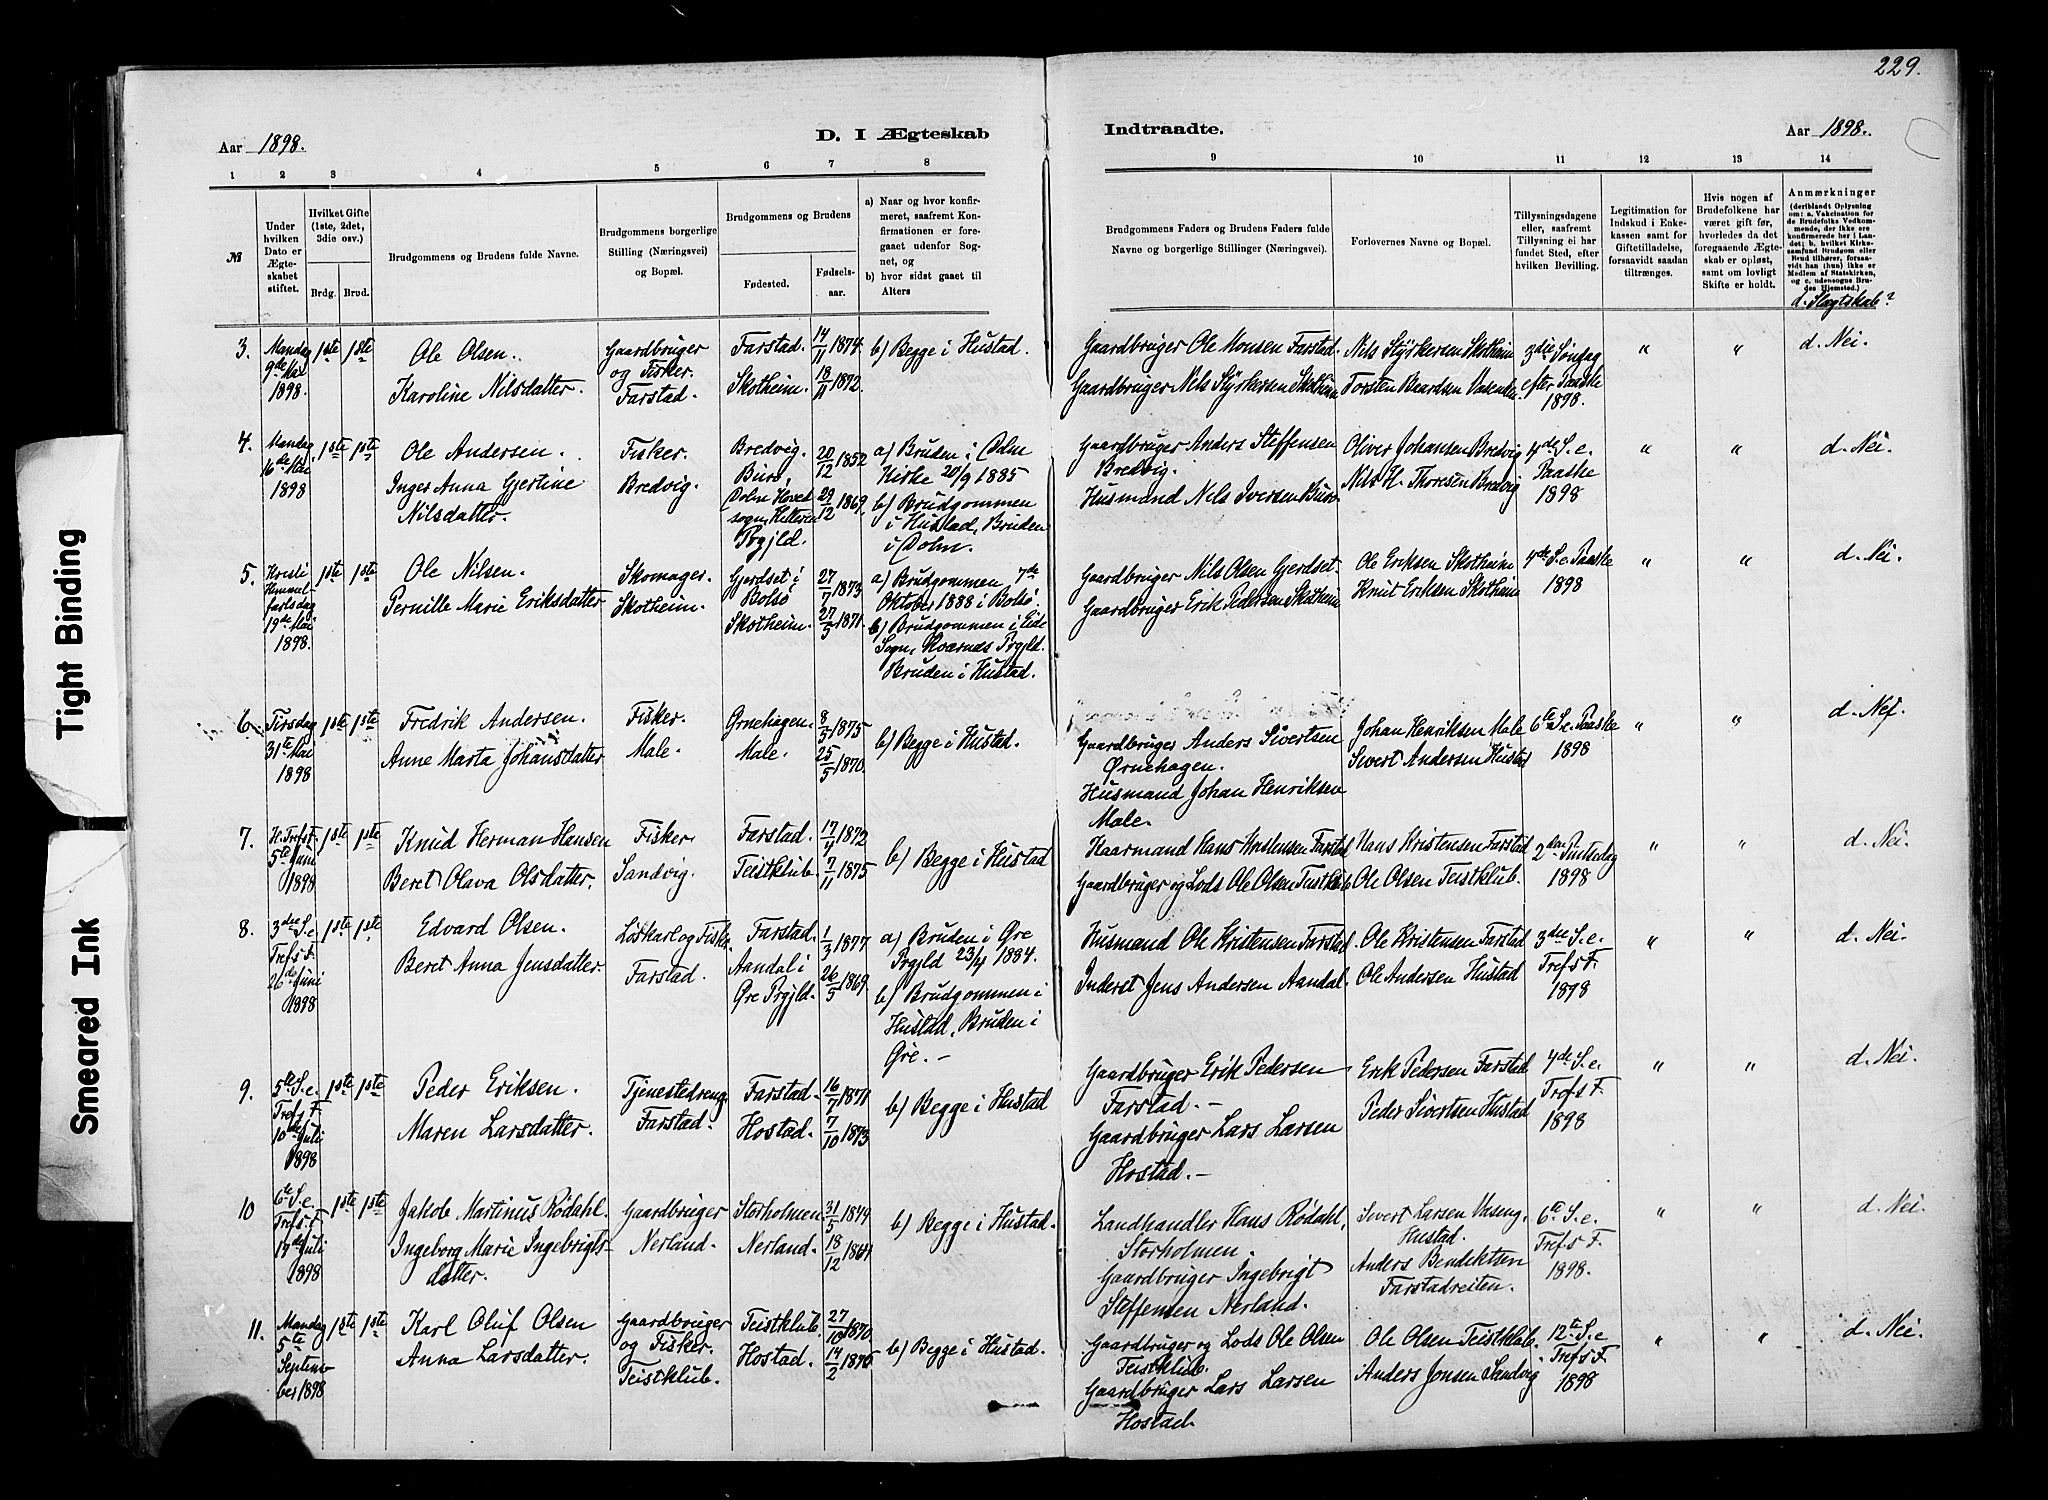 229.
Tight Binding
Smeared Ink
Aar 1898.
D. I Ægteskab
Indtraadte.
Aar 1898.
1 2 3 4 5 6 7 8 9 10 11 12 13 14
№
Under hvilken Dato er Ægteskabet stiftet.
Hvilket Gifte (1ste, 2det, 3die osv.)
Brdg. Brud.
Brudgommens og Brudens fulde Navne.
Brudgommens borgerlige Stilling (Næringsvei) og Bopæl.
Brudgommens og Brudens
Fødested.
Fødselsaar.
a) Naar og hvor konfirmeret, saafremt Konfirmationen er foregaaet udenfor Sognet, og
b) hvor sidst gaaet til Alters
Brudgommens Faders og Brudens Faders fulde Navne og borgerlige Stillinger (Næringsvei).
Forlovernes Navne og Bopæl.
Tillysningsdagene eller, saafremt Tillysning ei har fundet Sted, efter hvilken Bevilling.
Legitimation for Indskud i Enkekassen samt for Giftetilladelse, forsaavidt saadan tiltrænges.
Hvis nogen af Brudefolkene har været gift før, hvorledes da det foregaaende Ægteskab er opløst, samt om lovligt Skifte er holdt.
Anmærkninger
(deriblandt Oplysning om: a. Vakcination for de Brudefolks Vedkommende, der ikke ere konfirmerede her i Landet; b. hvilket Kirkesamfund Brudgom eller Brud tilhører, forsaavidt han (hun) ikke er Medlem af Statskirken, og c. udensogns Brudes Hjemsted.)
d. Slægtskab?
3. Mandag 9de Mai 1898. 1ste 1ste
Ole Olsen.
Karoline Nilsdatter.
Gaardbruger og Fisker. Farstad.
Farstad. 14/11 1874.
Skotheim. 18/11 1872.
b) Begge i Hustad.
Gaardbruger Ole Monsen Farstad.
Gaardbruger Nils Styrkersen Skotheim
Nils Styrkersen Skotheim
Torsten Beardsen
3die Søndag efter Paaske 1898.
" " d. Nei.
4. Mandag 16de Mai 1898 1ste 1ste
Ole Andersen.
Inger Anna Gjertine Nilsdatter.
Fisker. Bredvig.
Bredvig. 20/12 1852
Burø, Dolm Hoved sogn, Hitteren Prgjld. 29/12 1869.
a) Bruden i Dolm Kirke 20/9 1885
b) Brudgommen i Hustad, Bruden i Dolm.
Gaardbruger Anders Steffensen Bredvig.
Husmand Nils Iversen Burø
Oliver Johansen Bredvig
Nils H. Thoresen Bredvig
4de S. e. Paaske 1898
" " d. Nei.
5. Kristi Himmelfartsdag 19de Mai 1898. 1ste 1ste
Ole Nilsen.
Pernille Marie Eriksdatter
Skomager. Skotheim.
Gjerdset i Bolsø 27/7 1873
Skotheim. 27/5 1871.
a) Brudgommen 7de Oktober 1888 i Bolsø.
b) Brudgommen i Eide Sogn, Kværnes Prgjld. Bruden i Hustad.
Gaardbruger Nils Olsen Gjerdset.
Gaardbruger Erik Pedersen Skotheim
Ole Eriksen Skotheim
Knut Eriksen Skotheim
4de S. e. Paaske 1898
" " d. Nei.
6. Tirsdag 31te Mai 1898 1ste 1ste
Fredrik Andersen.
Anne Marta Johansdatter
Fisker. Male.
Ørnehagen. 8/5 1875
Male. 25/5 1870.
b) Begge i Hustad.
Gaardbruger Anders Sivertsen Ørnehagen.
Husmand Johan Henriksen Male.
Johan Henriksen Male
Sivert Andersen Hustad
6te S. e. Paaske 1898
" " d. Nej.
7. H. Tref. F. 5te Juni 1898 1ste 1ste
Knud Herman Hansen
Beret Olava Olsdatter.
Fisker. Sandvig.
Farstad. 17/4 1872
Teistklub. 7/11 1875
b) Begge i Hustad
Kaarmand Hans Kristensen Farstad
Gaardbruger og Lods Ole Olsen Teistklub
Hans Kristensen Farstad
Ole Olsen Teistklub.
2den Pintsedag 1898
" " d. Nei.
8. 3die S. e. Tref. s F. 26de Juni 1898 1ste 1ste
Edvard Olsen.
Beret Anna Jensdatter.
Løskarl og Fisker Farstad.
Farstad. 1/3 1877
Aandal i Gre Prgjld. 26/5 1869.
a) Bruden i Gre Prgjld 23/4 1884.
b) Brudgommen i Hustad, Bruden i Gre. -
Husmand Ole Kristensen Farstad.
Inderst Jens Andersen Aandal.
Ole Kristensen Farstad
Ole Andersen Hustad
3die S. e. Tref. s F. 1898
" " d. Nei.
9. 5te S. e. Tref. s F. 10de Juli 1898 1ste 1ste
Peder Eriksen.
Maren Larsdatter.
Tjenestedreng Farstad.
Farstad. 16/7 1871
Hostad. 7/10 1873
b) Begge i Hustad
Gaardbruger Erik Pedersen Farstad. -
Gaardbruger Lars Larsen Hostad. -
Erik Pedersen Farstad
Peder Sivertsen Hustad
4de S. e. Tref. s F. 1898
" " d. Nei.
10 6te S. e. Tref. s F. 17de Juli 1898 1ste 1ste
Jakob Martinus Rødahl.
Ingeborg Marie Ingebrigtsdatter.
Gaardbruger Nerland.
Storholmen. 31/5 1844
Nerland. 18/12
b) Begge i Hustad.
Landhandler Hans Rødahl, Storholmen.
Gaardbruger Ingebrigt Steffensen Nerland.
Sivert Larsen Vaseng, Hustad.
Anders Bendiktsen Farstadreiten.
6te S. e. Tref. s F. 1898.
" " d. Nei.
11. Mandag 5te September 1898 1ste 1ste
Karl Oluf Olsen
Anna Larsdatter.
Gaardbruger og Fisker. Teistklub.
Teistklub. 27/10 1870.
Hostad. 14/2 1876
b) Begge i Hustad.
Gaardbruger og Lods Ole Olsen Teistklub.
Gaardbruger Lars Larsen Hostad.
Ole Olsen Teistklub.
Anders Jonsen Sandvig
12te S. e Tref. s F. 1898
" " d. Nei.